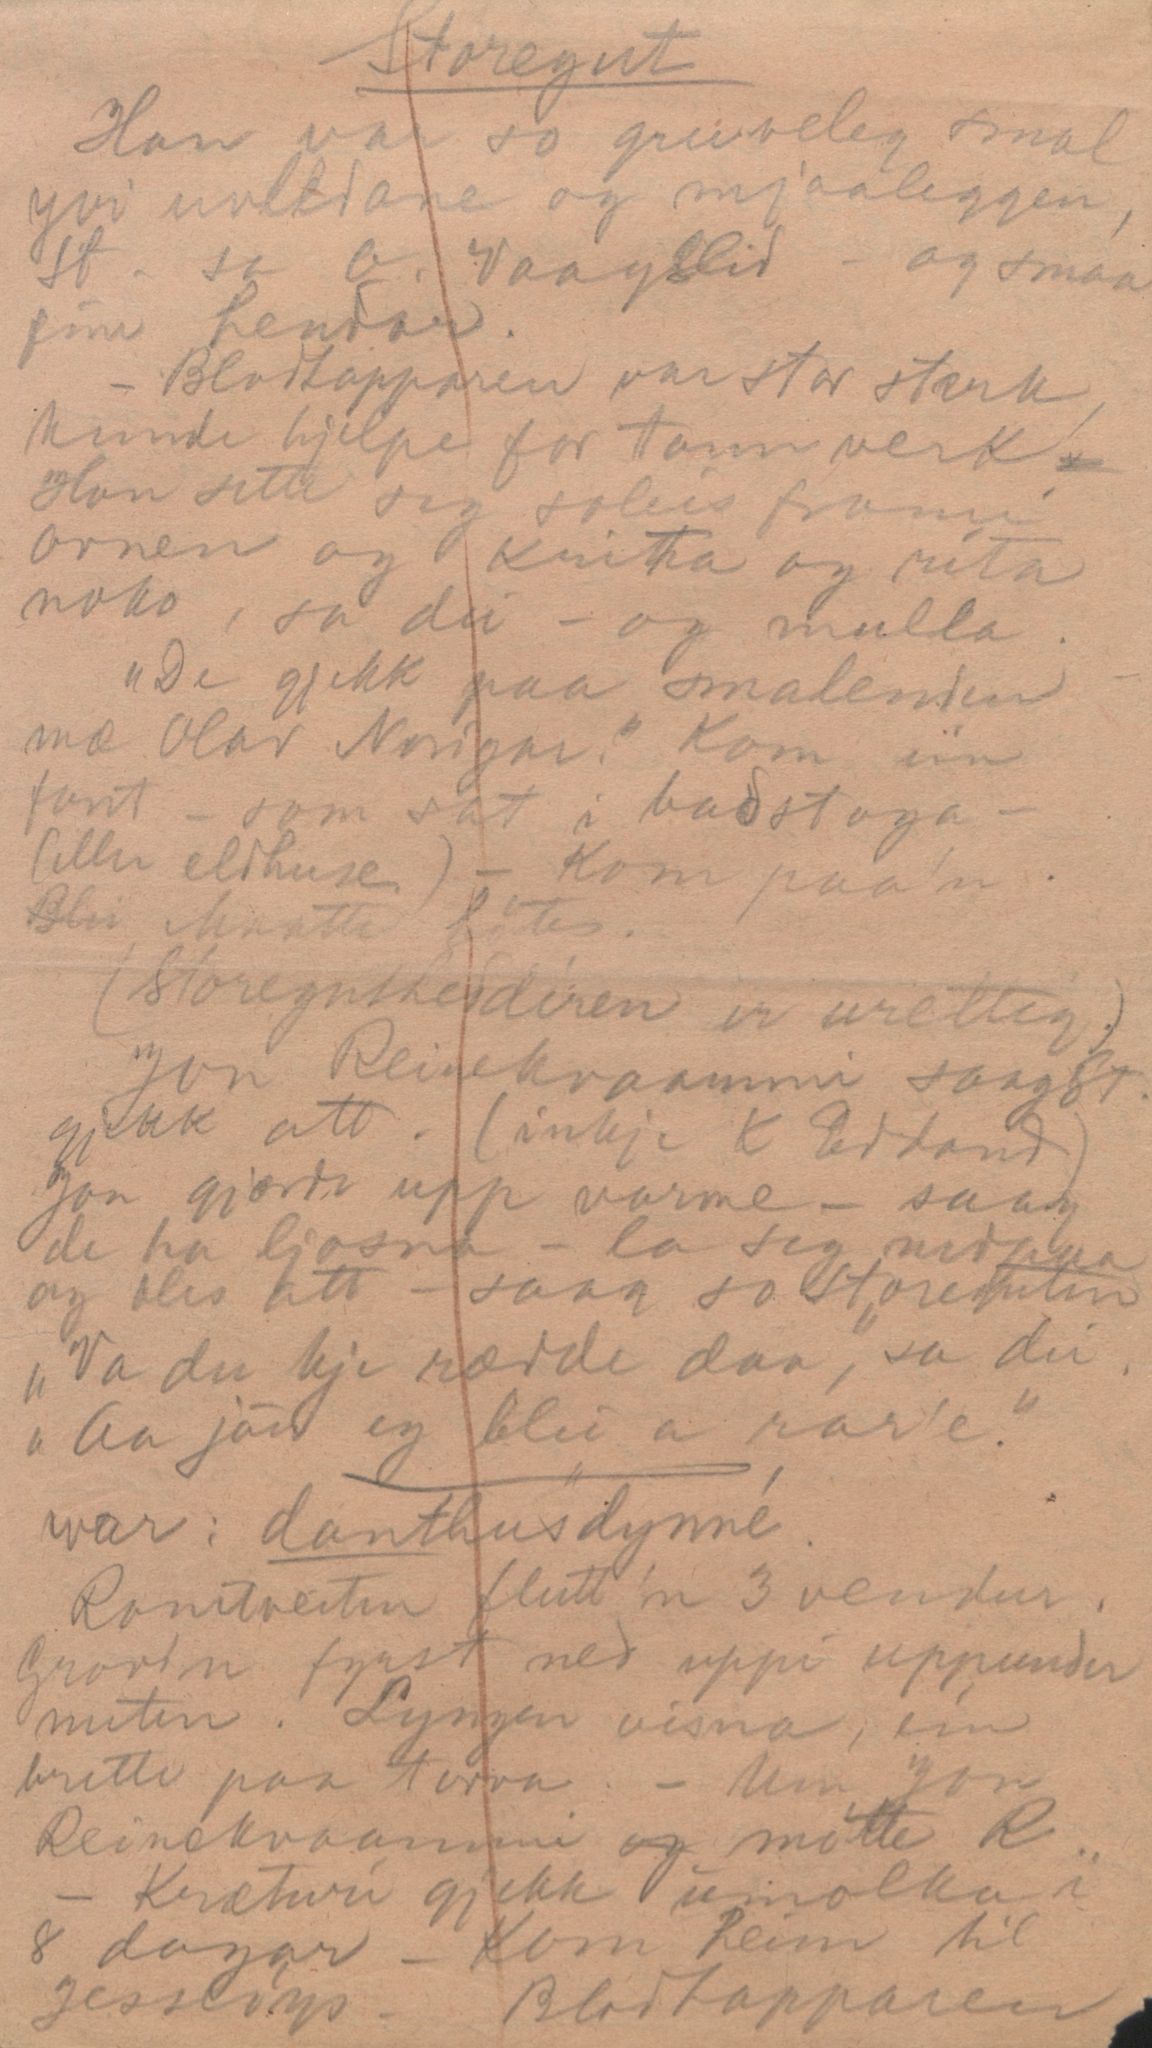 Storegut
Han var so gruveleg smal
yvi uvlidane og mjaaleggen,
St. sa O. Vaagslid - og smaa
fine hendar.
- Blodtapparen var stor sterk,
kunde hjelpe for tannverk.
Han sette seg soleis frami
ornen og kritta og rita
noko, sa dei - og mulla.
"De gjekk paa smalendun
mæ Olav Norigar." Kom ein
fant - som sat i badstoga -
(eller eldhuse) - Kom paa'n.
Blei
(Storegut er urettig.)
Jon Reinekvaammi saag St.
gjekk att. (inkje K Edland)
Jon gjorde upp varme - saag
de ha ljosna - la seg nedpaa
og bles att - saag so Storeguten
"Va du kje rædde daa," sa dei.
"Aa jau eg blei a rar'e."
var: danthusdynné.
Romtveiten flutt'n 3 vendur.
Grov'n fyrst ned uppi uppunder
nuten. Lyngen visna, ein
brette paa torva. - Um Jon
Reinekvaammi og møtte R.
- Krøturi gjekk umolka i
8 dagar - Kom heim til
- Blodtapparen